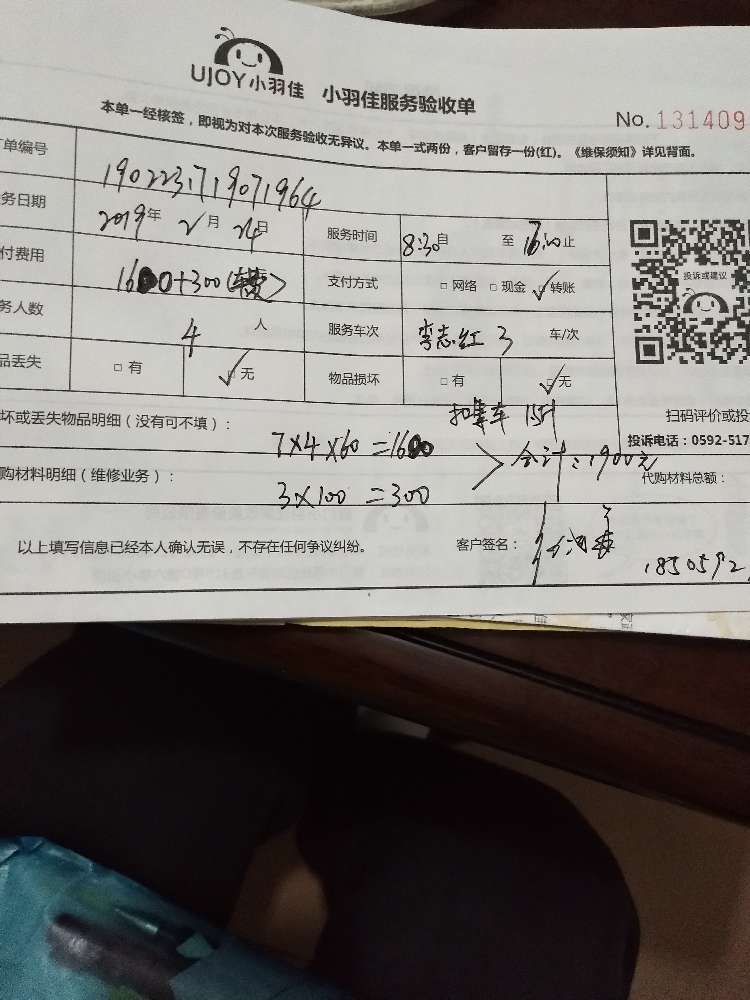 UJOY小羽佳 小羽佳服务验收单
本单一经核签，即视为对本次服务验收无异议。本单一式两份，客户留存一份(红)。《维保须知》详见背面。
No. 131409
单编号 190223719071964
务日期 2019年 2月 24日 服务时间 8:30自 至 止
付费用 1600+300(车费) 支付方式 □网络 □现金 ☑转账
务人数 4 人 服务车次 3 车/次
品丢失 □有 ☑无 物品损坏 □有 ☑无
投诉或建议
扫码评价或投
投诉电话：0592-517
坏或丢失物品明细（没有可不填）：
7×4×60=1600
合计：1900元
购材料明细（维修业务）：
3×100=300
代购材料总额：
以上填写信息已经本人确认无误，不存在任何争议纠纷。 客户签名：